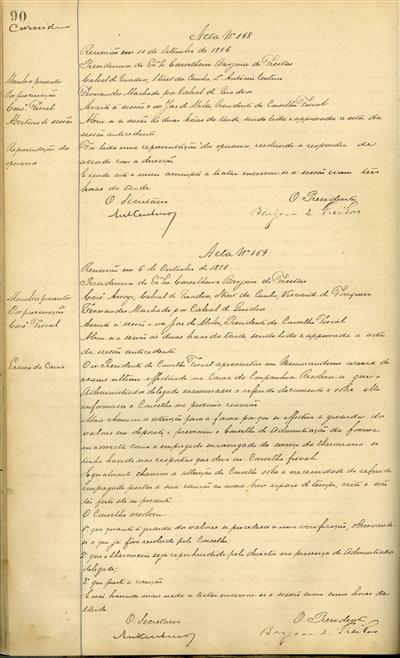 90
Acta Nº 168
Reunião em 11 de Setembro de 1896
Presidencia do Exmo Conselheiro Barjona de Freitas
Membros presentes
Cabral de Quadros, Street da Cunha, Antonio Centeno
Por procuração
Fernandes Machado por Cabral de Quadros
Consº Fiscal
Assistiu á sessão o snr José de Mello, Presidente do Conselho Fiscal
Abertura da sessão
Abriu-se a sessão ás duas horas da tarde sendo lida e approvada a acta da
sessão antecedente.
Representação do
operario
Foi lida uma representação do operario, resolvendo-se responder de
accordo com a direcção
E sendo este o unico assumpto a tratar encerrou-se a sessão eram tres
horas da tarde.
O Secretario
O Presidente
Barjona de Freitas
Acta Nº 169
Reunião em 6 de Outubro de 1896
Presidencia do Exmo Conselheiro Barjona de Freitas
Membros presentes
Cabral de Quadros, Street da Cunha, Visconde de
Por procuração
Fernandes Machado por Cabral de Quadros
Consº Fiscal
Assistiu á sessão o snr José de Mello, Presidente do Conselho Fiscal
Abriu-se a sessão ás duas horas da tarde sendo lida e approvada a acta
da sessão antecedente
Exame da Caixa
O snr Presidente do Conselho Fiscal apresentou um Memorandum acerca do
exame ultimo effectuado na Caixa da Companhia. Resolveu-se que o
Administrador delegado examinasse o referido documento e sobre elle
informasse o Conselho na proxima reunião
Mais chamou a attenção para a forma por que se effectua a guarda dos
valores em deposito, e preveniu o Conselho de Administração da forma
incorrecta como o empregado encarregado do serviço da thesouraria se
tinha havido nas respostas que deu ao Conselho fiscal.
Egualmente chamou a attenção do Conselho sobre a necessidade do referido
empregado prestar a sua caução no mais curto espaço de tempo, visto o não
ter feito até ao presente.
O Conselho resolveu:
1º que quanto á guarda dos valores se procedesse a uma verificação, observando-
se o que já fora resolvido pelo Conselho
2º que o thesoureiro seja reprehendido pela directa na presença do Administrador
delegado;
3º que preste a caução
E não havendo mais nada a tratar encerrou-se a sessão eram cinco horas da
tarde.
O Secretario
O Presidente
Barjona de Freitas